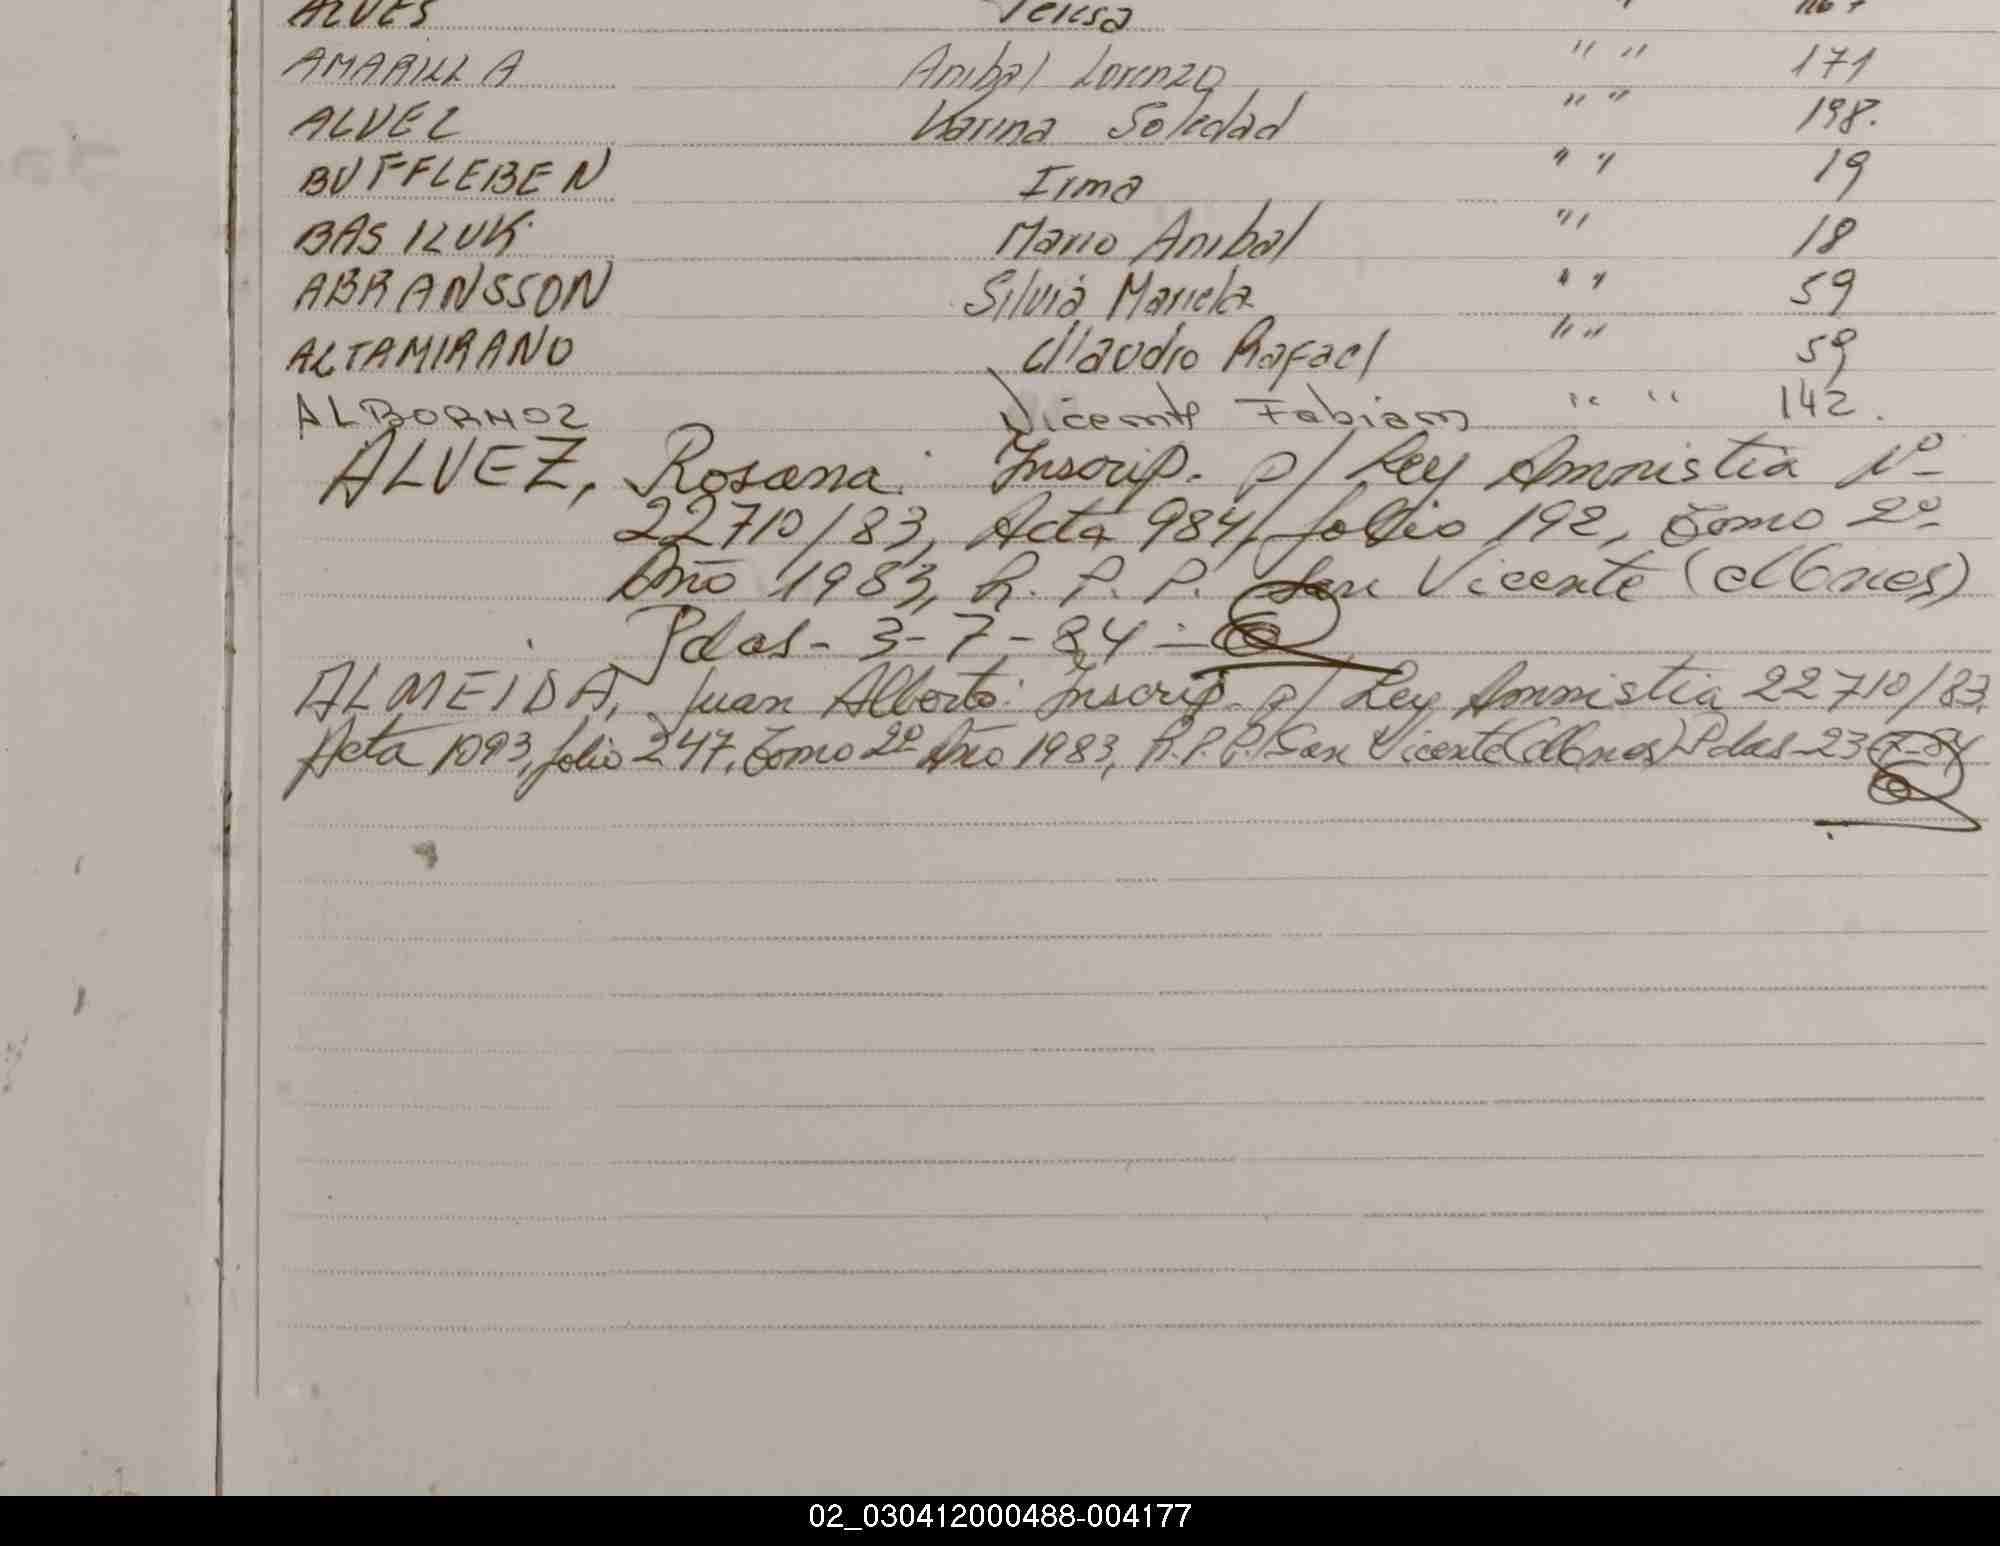 ALVES Teresa "
AMARILLA Anibal Lorenzo " " 171
ALVEZ Karina Soledad " " 198.
BUFFLEBEN Irma " " 19
BASILUK Mario Anibal " " 18
ABRANSSON Silvia Mariela " " 59
ALTAMIRANO Claudio Rafael " " 59
ALBORNOZ Vicente Fabian " " 142.
ALVEZ, Rosana: Inscrip. p/ Ley Amnistia Nº
22710/83, Acta 984, folio 192, Tomo 2º
Año 1983, R. P. P. San Vicente (Mnes)
Pdas - 3-7-84 -
ALMEIDA, Juan Alberto: Inscrip. p/ Ley Amnistia 22710/83.
Acta 1093, folio 247, Tomo 2º Año 1983, R.P.P. San Vicente (Mnes) Pdas-23-7-84
02_030412000488-004177